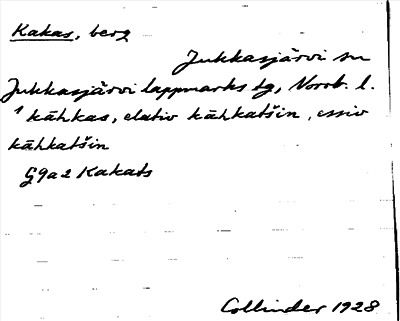 Kakas, berg
Jukkasjärvi sn
Jukkasjärvi lappmarks tg, Norrb. l.
1 kāhkas, elativ kāhkatšin, essiv
kāhkatšin
G9a2 Kakats
Collinder 1928